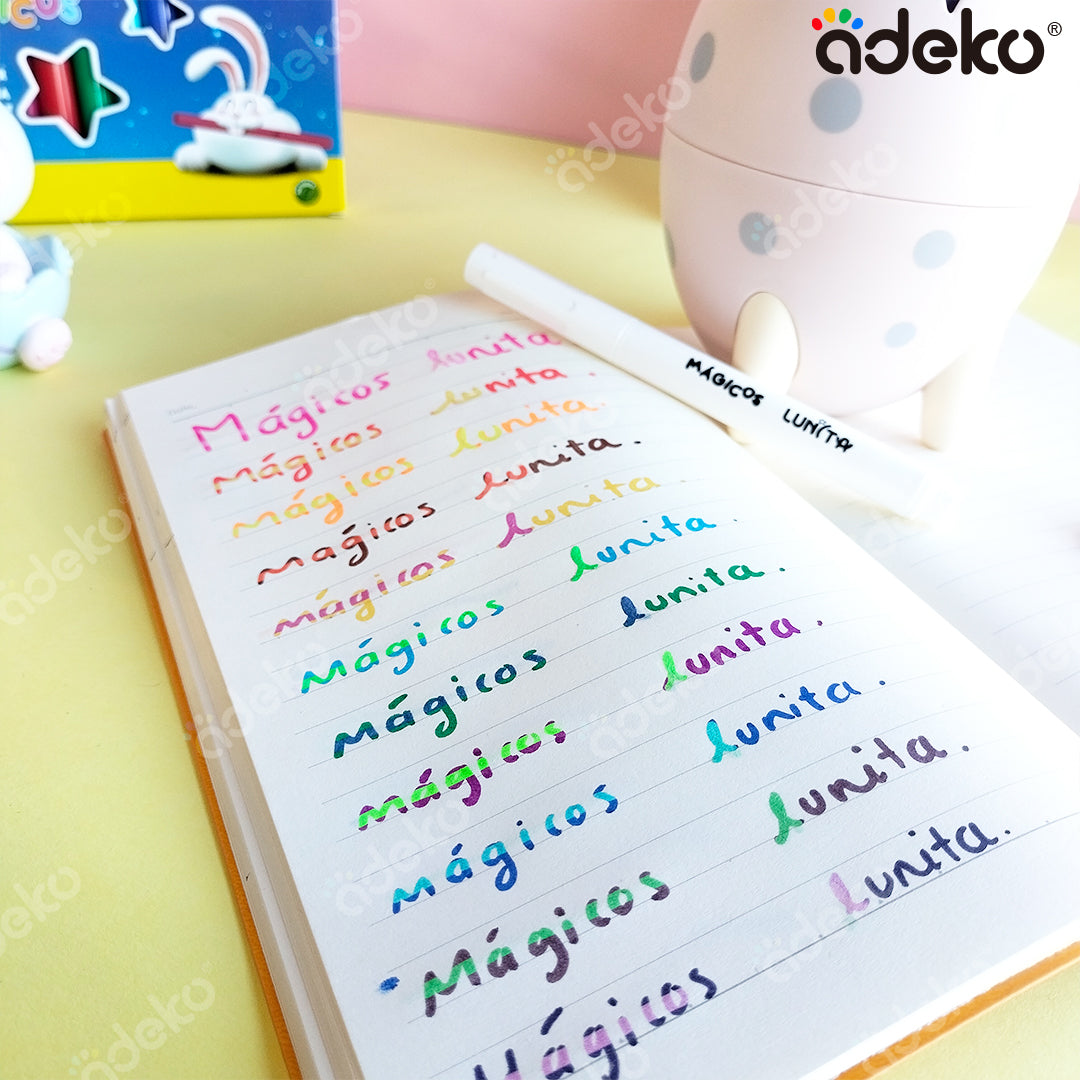 adeko®
MÁGICOS LUNITA
Mágicos lunita
Mágicos lunita.
mágicos lunita.
mágicos lunita.
mágicos lunita.
Mágicos lunita.
Mágicos lunita.
mágicos lunita.
mágicos lunita.
Mágicos lunita.
Mágicos lunita.